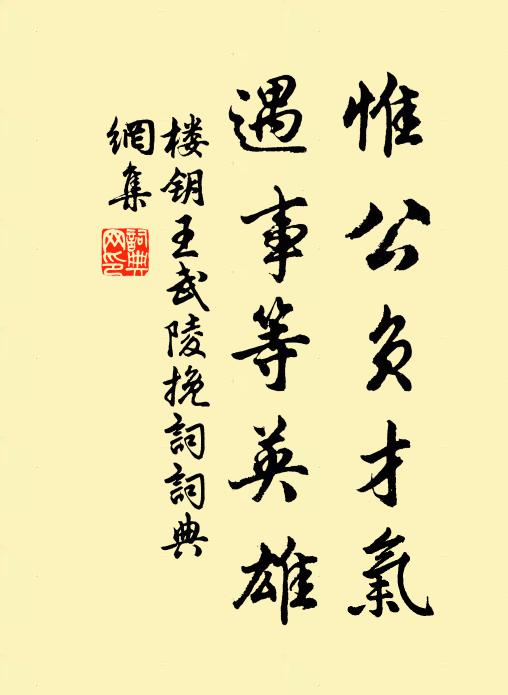 惟公負才氣
遇事等英雄
楼钥王武陵挽詞詞典
網集
詞典
网印